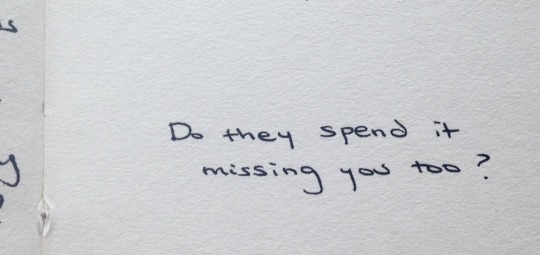 Do they spend it
missing you too?